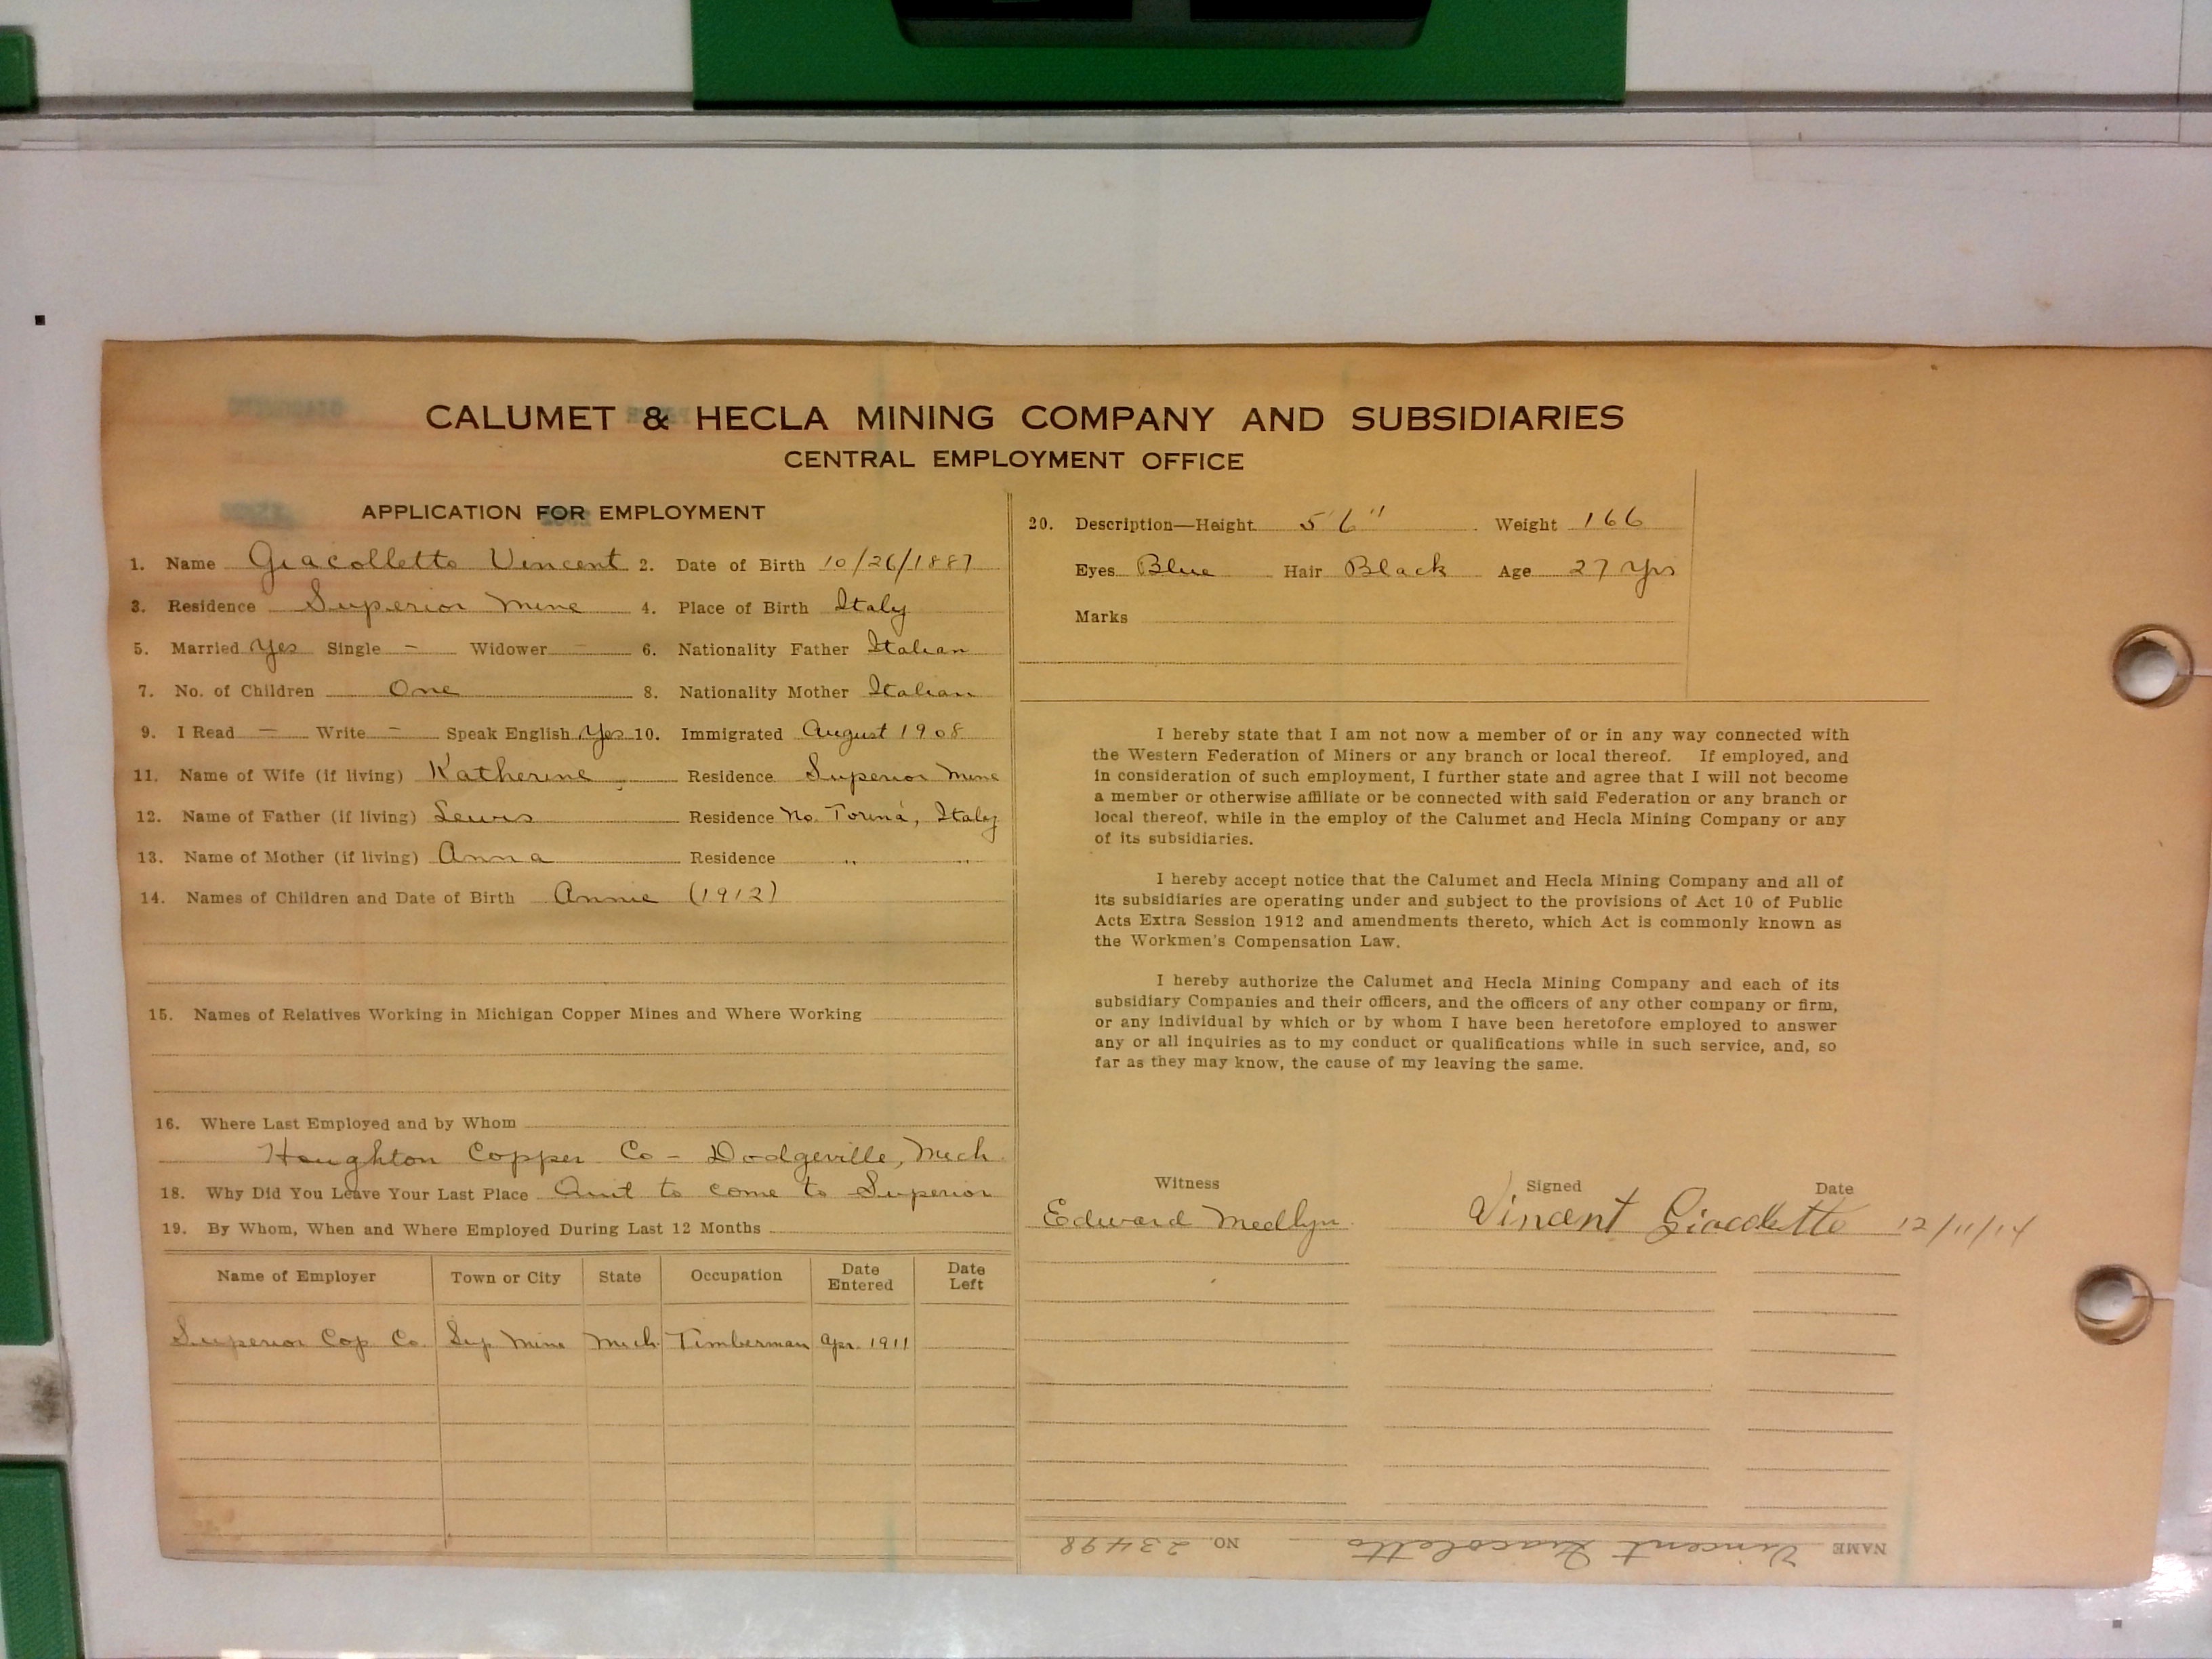 CALUMET & HECLA MINING COMPANY AND SUBSIDIARIES
CENTRAL EMPLOYMENT OFFICE
APPLICATION FOR EMPLOYMENT
1. Name Giacolletto Vincent 2. Date of Birth 10/26/1887
3. Residence Superior Mine 4. Place of Birth Italy
5. Married Yes Single - Widower - 6. Nationality Father Italian
7. No. of Children One 8. Nationality Mother Italian
9. I Read - Write - Speak English Yes 10. Immigrated August 1908
11. Name of Wife (if living) Katherine Residence Superior Mine
12. Name of Father (if living) Lewis Residence No. Torina, Italy
13. Name of Mother (if living) Anna Residence " "
14. Names of Children and Date of Birth Annie (1912)
15. Names of Relatives Working in Michigan Copper Mines and Where Working
16. Where Last Employed and by Whom
Houghton Copper Co - Dodgeville, Mich
18. Why Did You Leave Your Last Place Quit to come to Superior
19. By Whom, When and Where Employed During Last 12 Months
Name of Employer Town or City State Occupation Date Entered Date Left
Superior Cop Co. Sup Mine Mich. Timberman Apr. 1911
20. Description—Height 5' 6" Weight 166
Eyes Blue Hair Black Age 27 Yrs
Marks
I hereby state that I am not now a member of or in any way connected with
the Western Federation of Miners or any branch or local thereof. If employed, and
in consideration of such employment, I further state and agree that I will not become
a member or otherwise affiliate or be connected with said Federation or any branch or
local thereof, while in the employ of the Calumet and Hecla Mining Company or any
of its subsidiaries.
I hereby accept notice that the Calumet and Hecla Mining Company and all of
its subsidiaries are operating under and subject to the provisions of Act 10 of Public
Acts Extra Session 1912 and amendments thereto, which Act is commonly known as
the Workmen's Compensation Law.
I hereby authorize the Calumet and Hecla Mining Company and each of its
subsidiary Companies and their officers, and the officers of any other company or firm,
or any individual by which or by whom I have been heretofore employed to answer
any or all inquiries as to my conduct or qualifications while in such service, and, so
far as they may know, the cause of my leaving the same.
Witness Signed Date
Edward Medlyn Vincent Giacoletto 12/11/14
NAME Vincent Giacoletto NO. 23498